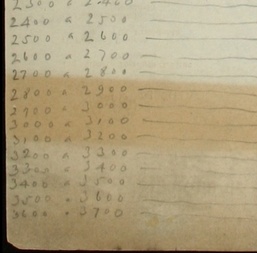 2300 a 2400
2400 a 2500
2500 a 2600
2600 a 2700
2700 a 2800
2800 a 2900
2900 a 3000
3000 a 3100
3100 a 3200
3200 a 3300
3300 a 3400
3400 a 3500
3500 a 3600
3600 a 3700